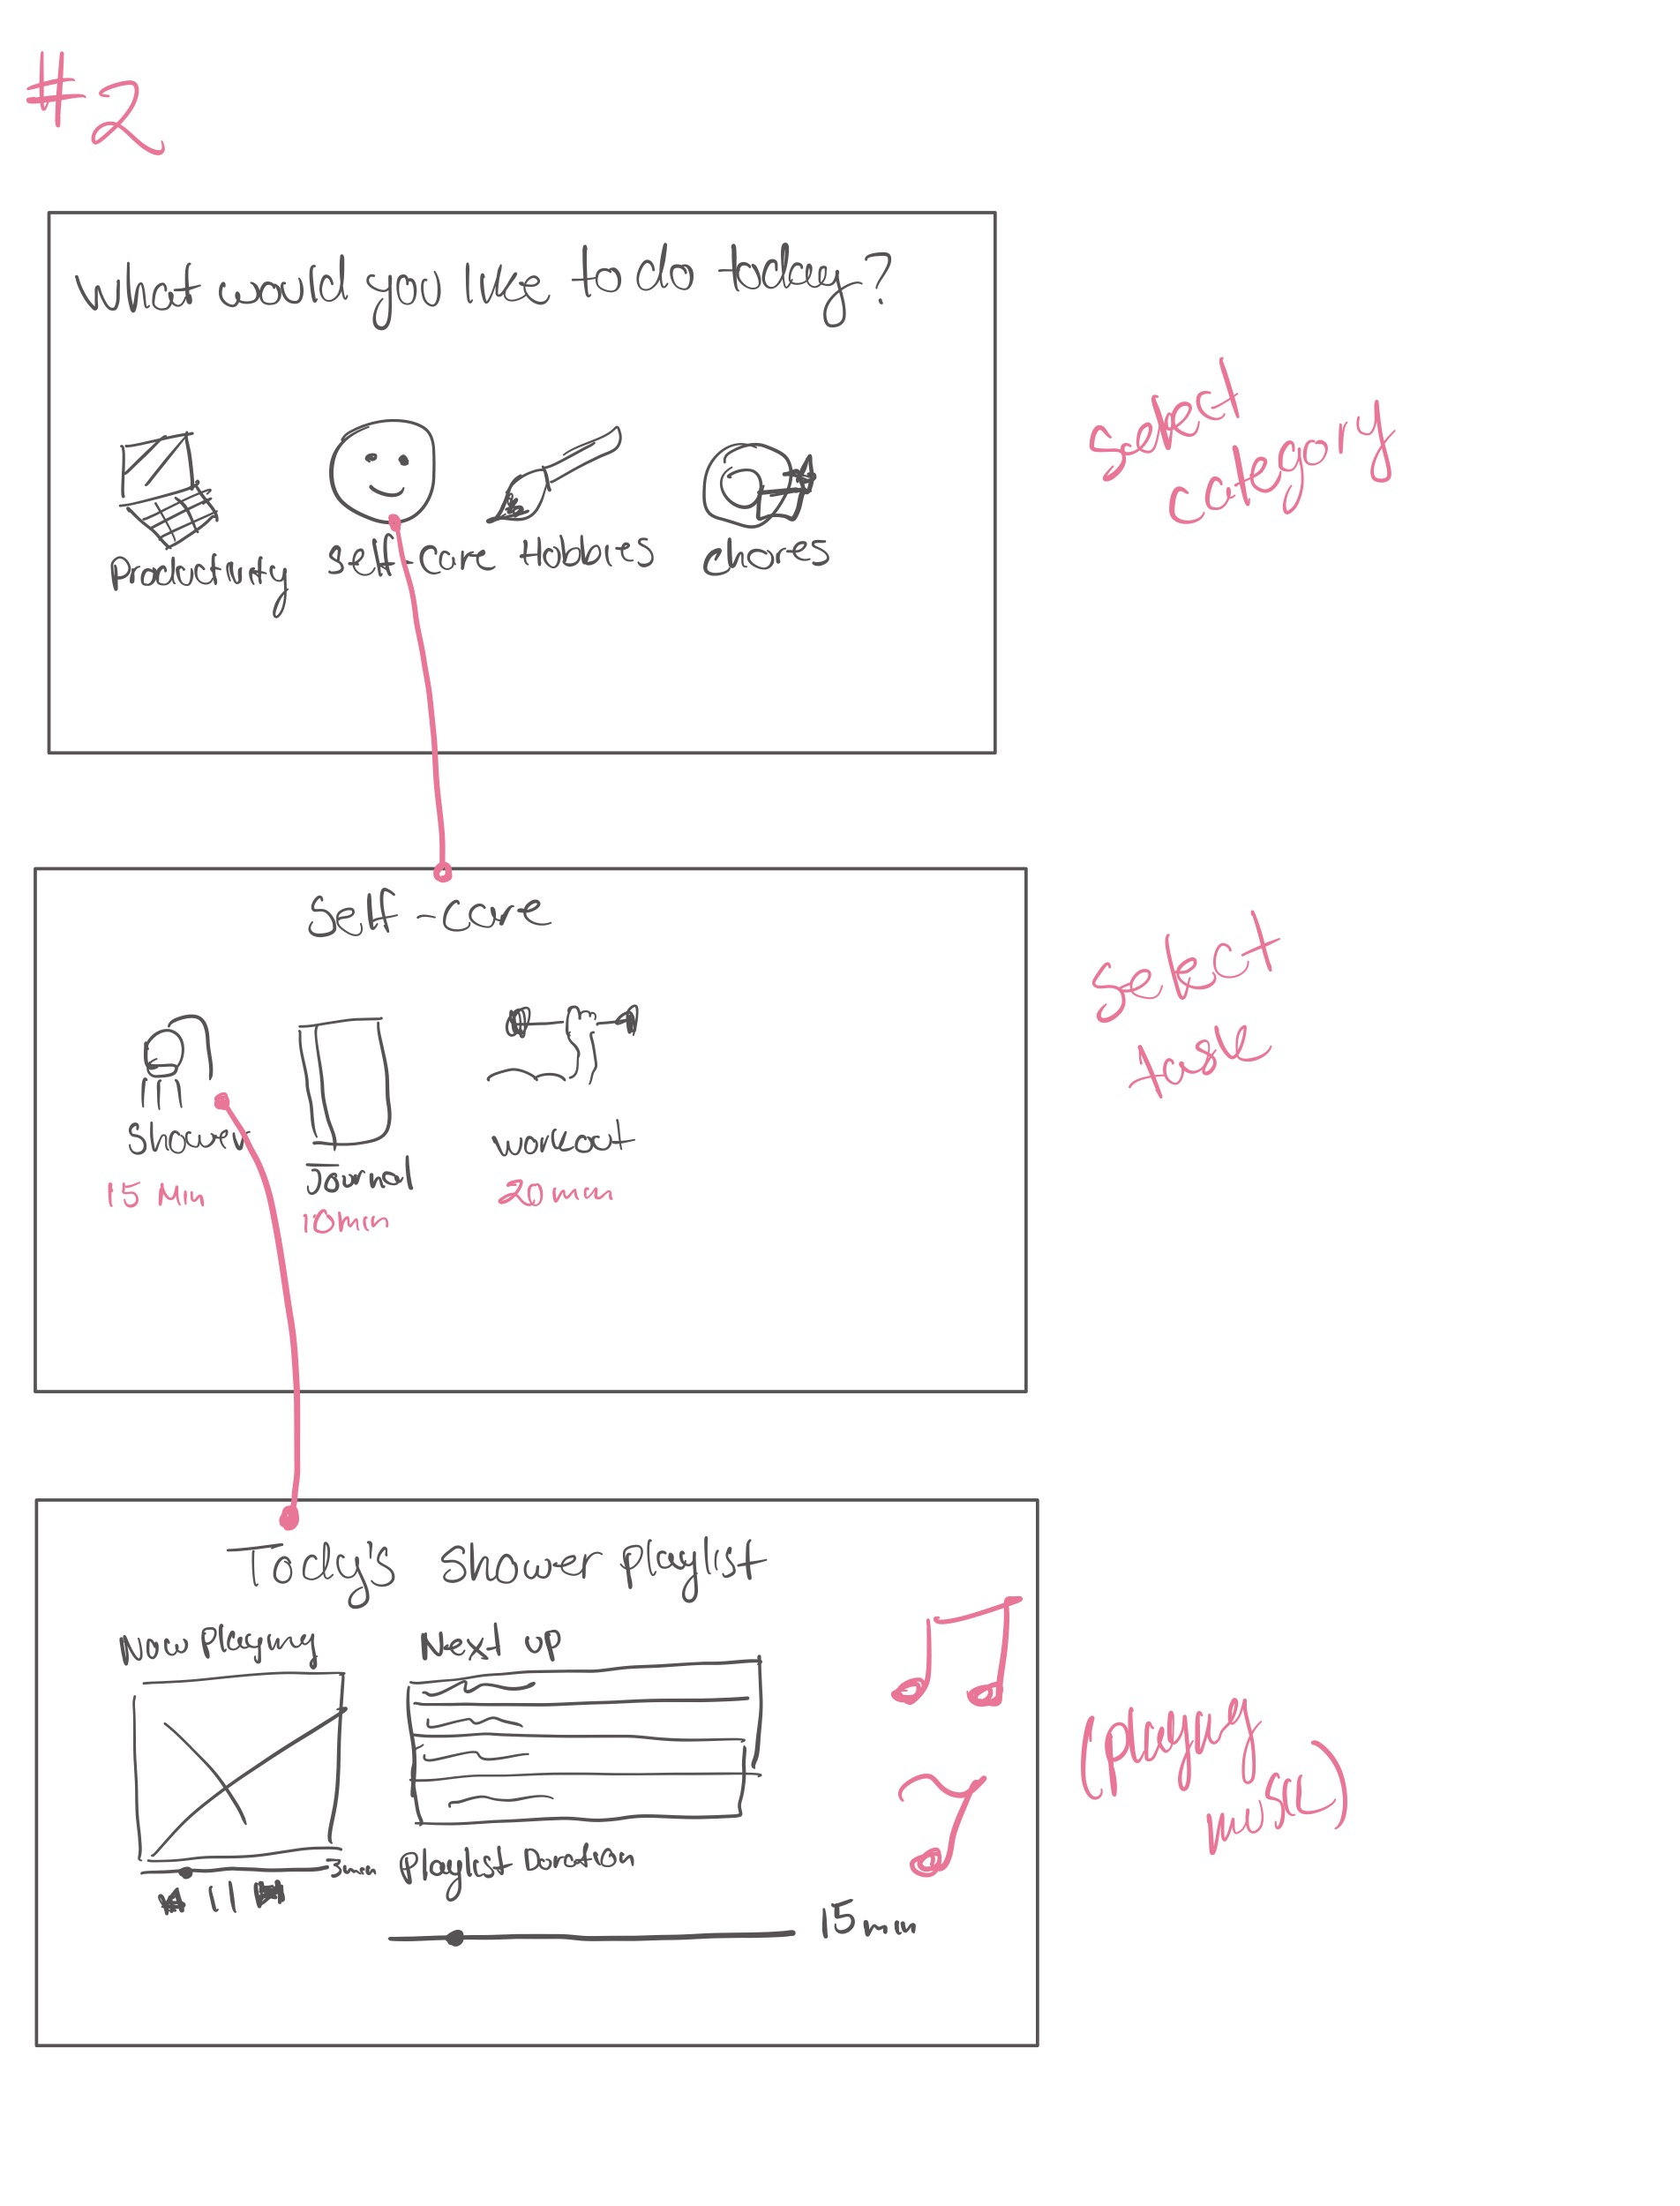 #2
What would you like to do today?
Productivity
Self-care
Hobbies
chores
Select
category
Self-care
Shower
15 Min
Journal
10min
workout
20min
Select
task
Today's Shower playlist
Now Playing
Next up
3min
Playlist Duration
15min
(playing
music)